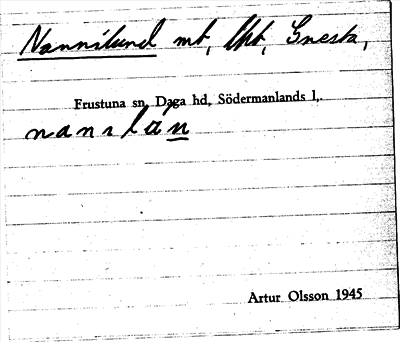 Nannilund mt, lht, Gnesta,
Frustuna sn, Daga hd, Södermanlands l,.
nanslán
Artur Olsson 1945